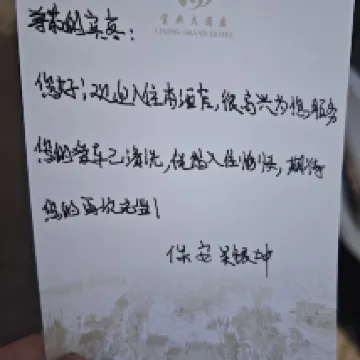 大酒店
GRAND HOTEL
尊敬的宾客：
您好！欢迎入住本酒店，很高兴为您服务
您的爱车已清洗，祝您入住愉快，期待
您的再次光临！
保安